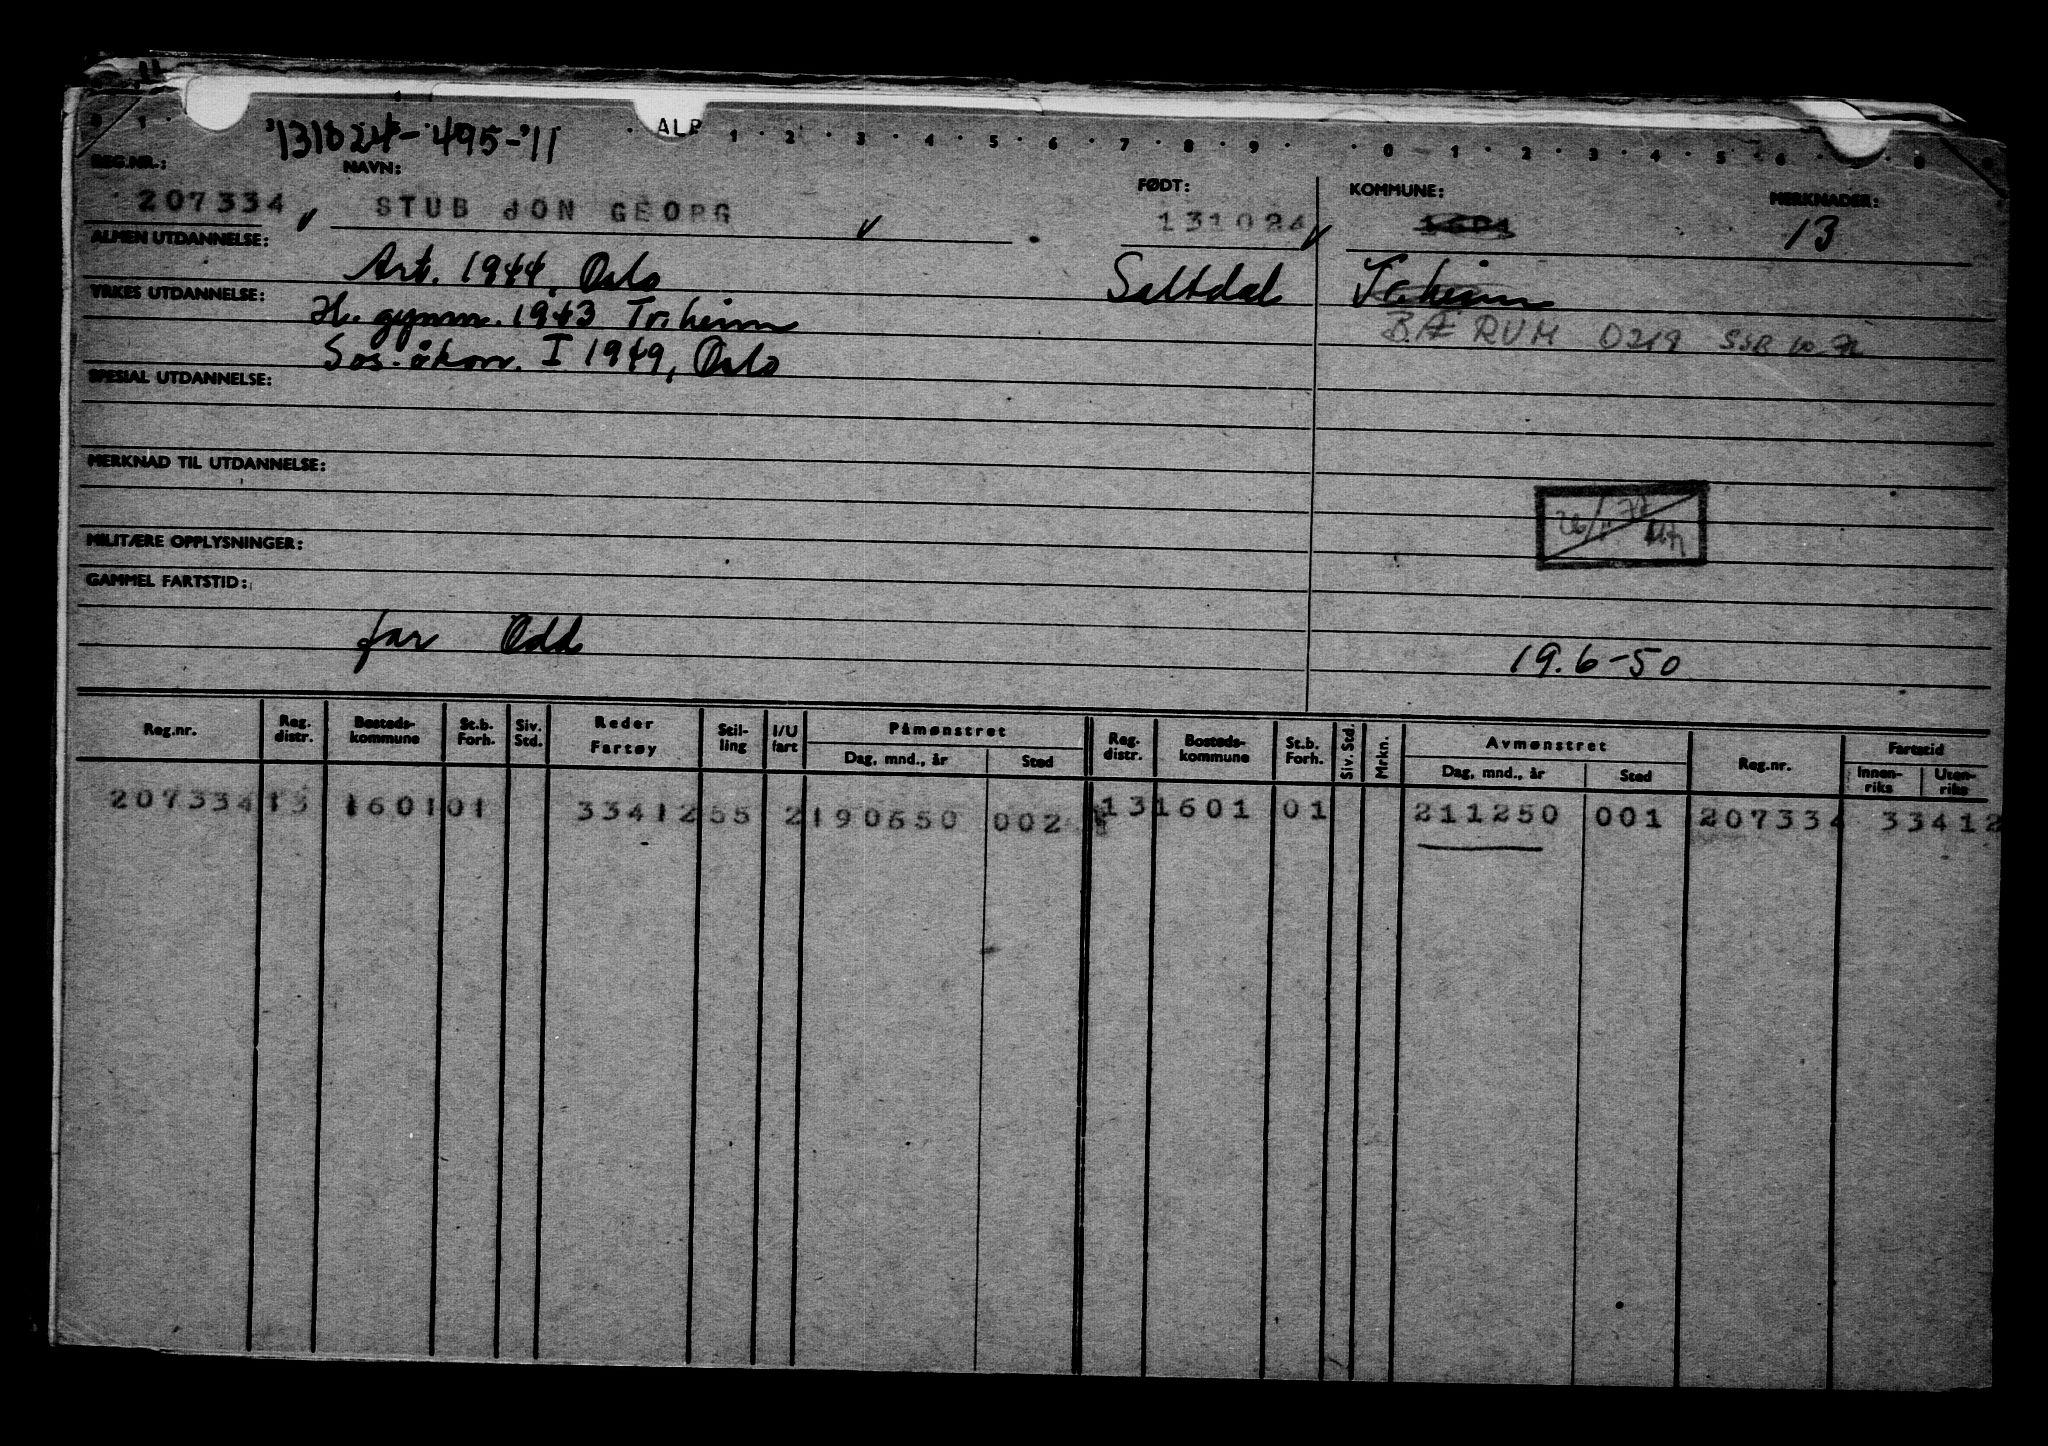 131024-495-11
ALP 1 · 2 · 3 · 4 · 5 · 6 · 7 · 8 · 9 · · 0 · 1 · 2 · 3 · 4 · 5 · 6
REG.NR.: NAVN: FØDT: KOMMUNE: MERKNADER:
207334 STUB JON GEORG 131024 13
ALMEN UTDANNELSE: Art. 1944, Oslo Saltdal Tr.heim
YRKES UTDANNELSE: H. gymn. 1943 Tr.heim BÆRUM 0219 SSB
Sos. økon. I 1949, Oslo
SPESIAL UTDANNELSE:
MERKNAD TIL UTDANNELSE:
26/11 70
MILITÆRE OPPLYSNINGER:
GAMMEL FARTSTID:
far Odd 19.6-50
Reg.nr. Reg. distr. Bosteds-kommune St.b. Forh. Siv. Std. Reder Fartøy Stil-ling I/U fart Påmønstret Dag, mnd., år Sted Reg. distr. Bosteds-kommune St.b. Forh. Siv. Std. Mrkn. Avmønstret Dag, mnd., år Sted Reg.nr. Fartstid Innen-riks Uten-riks
207334 13 1601 01 33412 55 2 190650 002 13 1601 01 211250 001 207334 33412